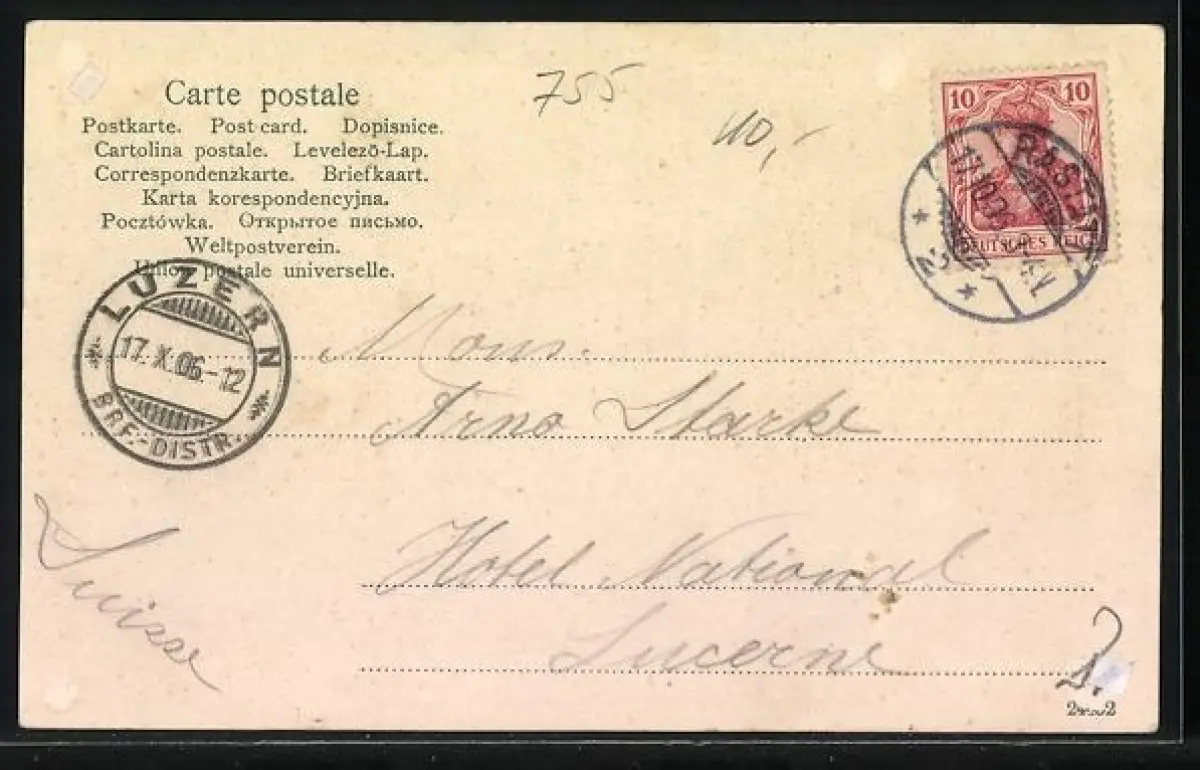 Carte postale
Postkarte. Post card. Dopisnice.
Cartolina postale. Levelező-Lap.
Correspondenzkarte. Briefkaart.
Karta korespondencyjna.
Pocztówka. Открытое письмо.
Weltpostverein.
Union postale universelle.
755
10 10
DEUTSCHES REICH
RASTATT
17.10.06
* 2 *
LUZERN
17.X.06.-12
BRF.-DISTR.
Mons.
Arno Starke
Hotel National
Lucerne
Suisse